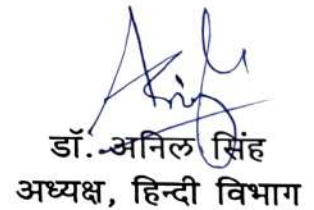 डॉ. अनिल सिंह
अध्यक्ष, हिन्दी विभाग